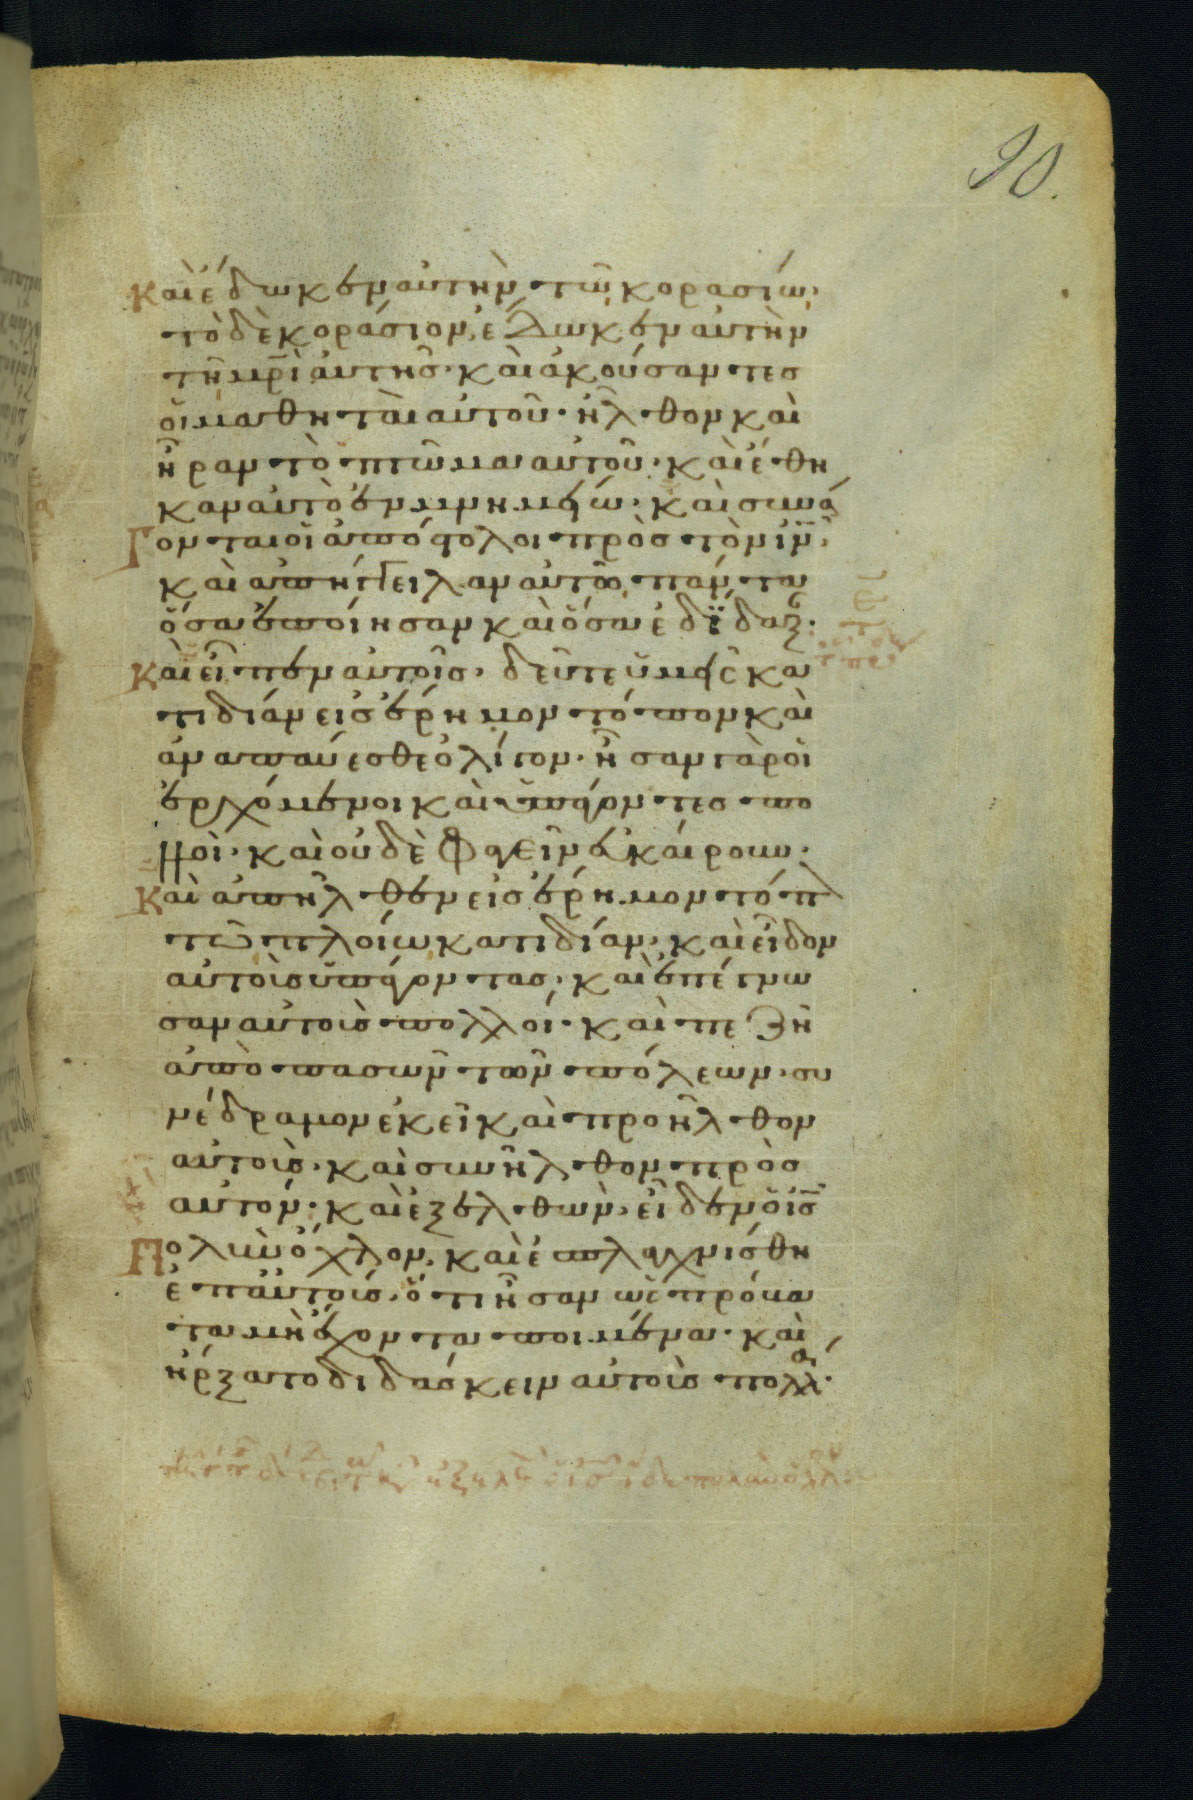 90.
καὶ ἔδωκεν αὐτὴν τῶ κορασίω·
τὸ δὲ κοράσιον, ἔδωκεν αὐτὴν
τῆ μρὶ αὐτῆς· καὶ ἀκούσαντες
οἱ μαθηταὶ αὐτοῦ· ἦλθον καὶ
ἦραν τὸ πτῶμα αὐτοῦ· καὶ ἔθη
καν αὐτὸ ἐν μνημείω· καὶ συνά
γονται οἱ ἀπόστολοι πρὸς τὸν ιν·
καὶ ἀπήγγειλαν αὐτῶ πάντα
ὅσα ἐποίησαν καὶ ὅσα ἐδίδαξ·
καὶ εἶπεν αὐτοῖς· δεῦτε ὑμεῖς κα
τιδίαν εἰς ἔρημον τόπον καὶ
ἀναπαύεσθε ὀλίγον· ἦσαν γὰρ οἱ
ἐρχόμενοι καὶ ὑπάγοντες πο
λλοὶ· καὶ οὐδὲ φαγεῖν εὐκαίρουν·
καὶ ἀπῆλθεν εἰς ἔρημον τόπ
τῶ πλοίω κατιδίαν· καὶ εἶδον
αὐτοὺς ὑπάγοντας· καὶ ἐπέγνω
σαν αὐτοὺς πολλοί· καὶ πεζῆ
ἀπὸ πασῶν τῶν πόλεων· συ
νέδραμον ἐκεῖ καὶ προῆλθον
αὐτοὺς· καὶ συνῆλθον πρὸς
αὐτόν· καὶ ἐξελθὼν· εἶδεν ὁ ις
πολὺν ὄχλον, καὶ ἐσπλαγχνίσθη
ἐπ αὐτοῖς, ὅτι ἦσαν ὡς πρόβα
τα μὴ ἔχοντα ποιμένα· καὶ
ἤρξατο διδάσκειν αὐτοὺς πολλά·